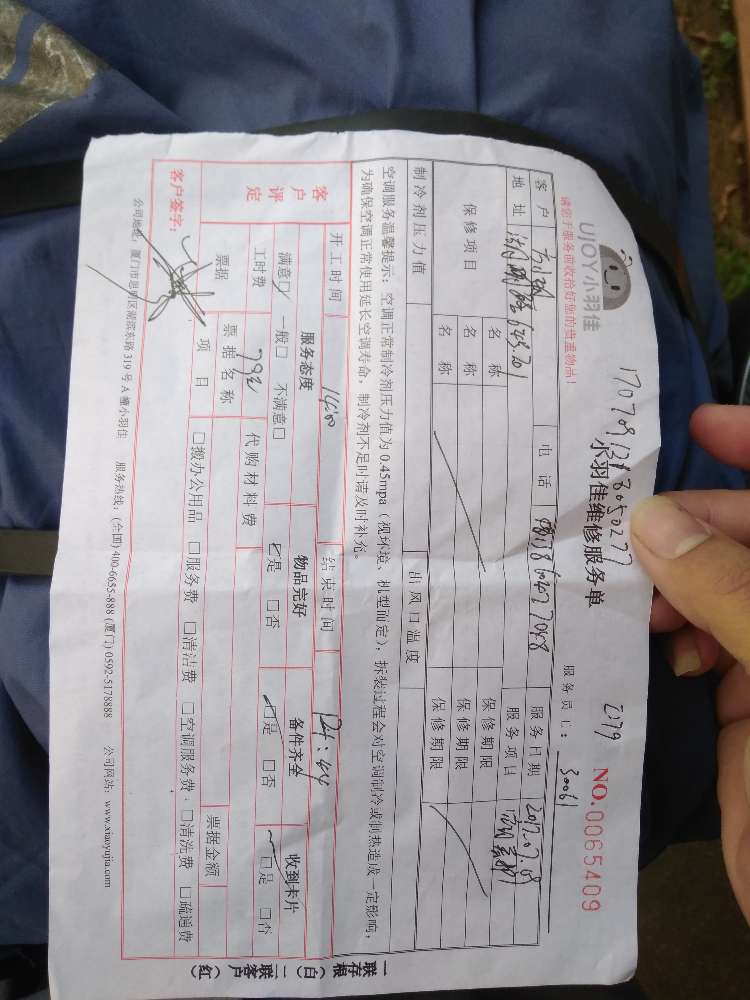 UJOY小羽佳
1707091313050277
2379
NO.0065409
小羽佳维修服务单
请您于服务前收拾好您的贵重物品!
服务员工: 30061
客户
电话
服务日期 2017.07.09
地址
服务项目
保修项目
名称
保修期限
名称
保修期限
名称
保修期限
制冷剂压力值
出风口温度
空调服务温馨提示:空调正常制冷剂压力值为0.45mpa(视环境、机型而定),拆装过程会对空调制冷或制热造成一定影响,
为确保空调正常使用延长空调寿命,制冷剂不足时请及时补充。
开工时间
结束时间
客户评定
服务态度
物品完好
备件齐全
收到卡片
满意□ 一般□ 不满意□
□是 □否
□是 □否
□是 □否
工时费
代购材料费
票据
票据名称
票据金额
项目
□搬办公用品 □服务费 □清洁费 □空调服务费 □清洗费 □疏通费
客户签字:
公司地址:厦门市思明区湖滨东路319号A幢小羽佳 服务热线:(全国)400-6655-888 (厦门)0592-5178888 公司网站:www.xiaoyujia.com
一联存根(白) 二联客户(红)